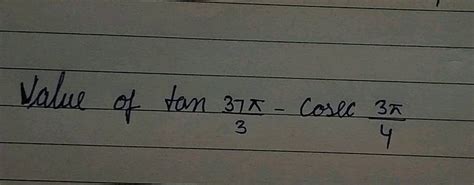 Value of tan 37π/3 - Cosec 3π/4